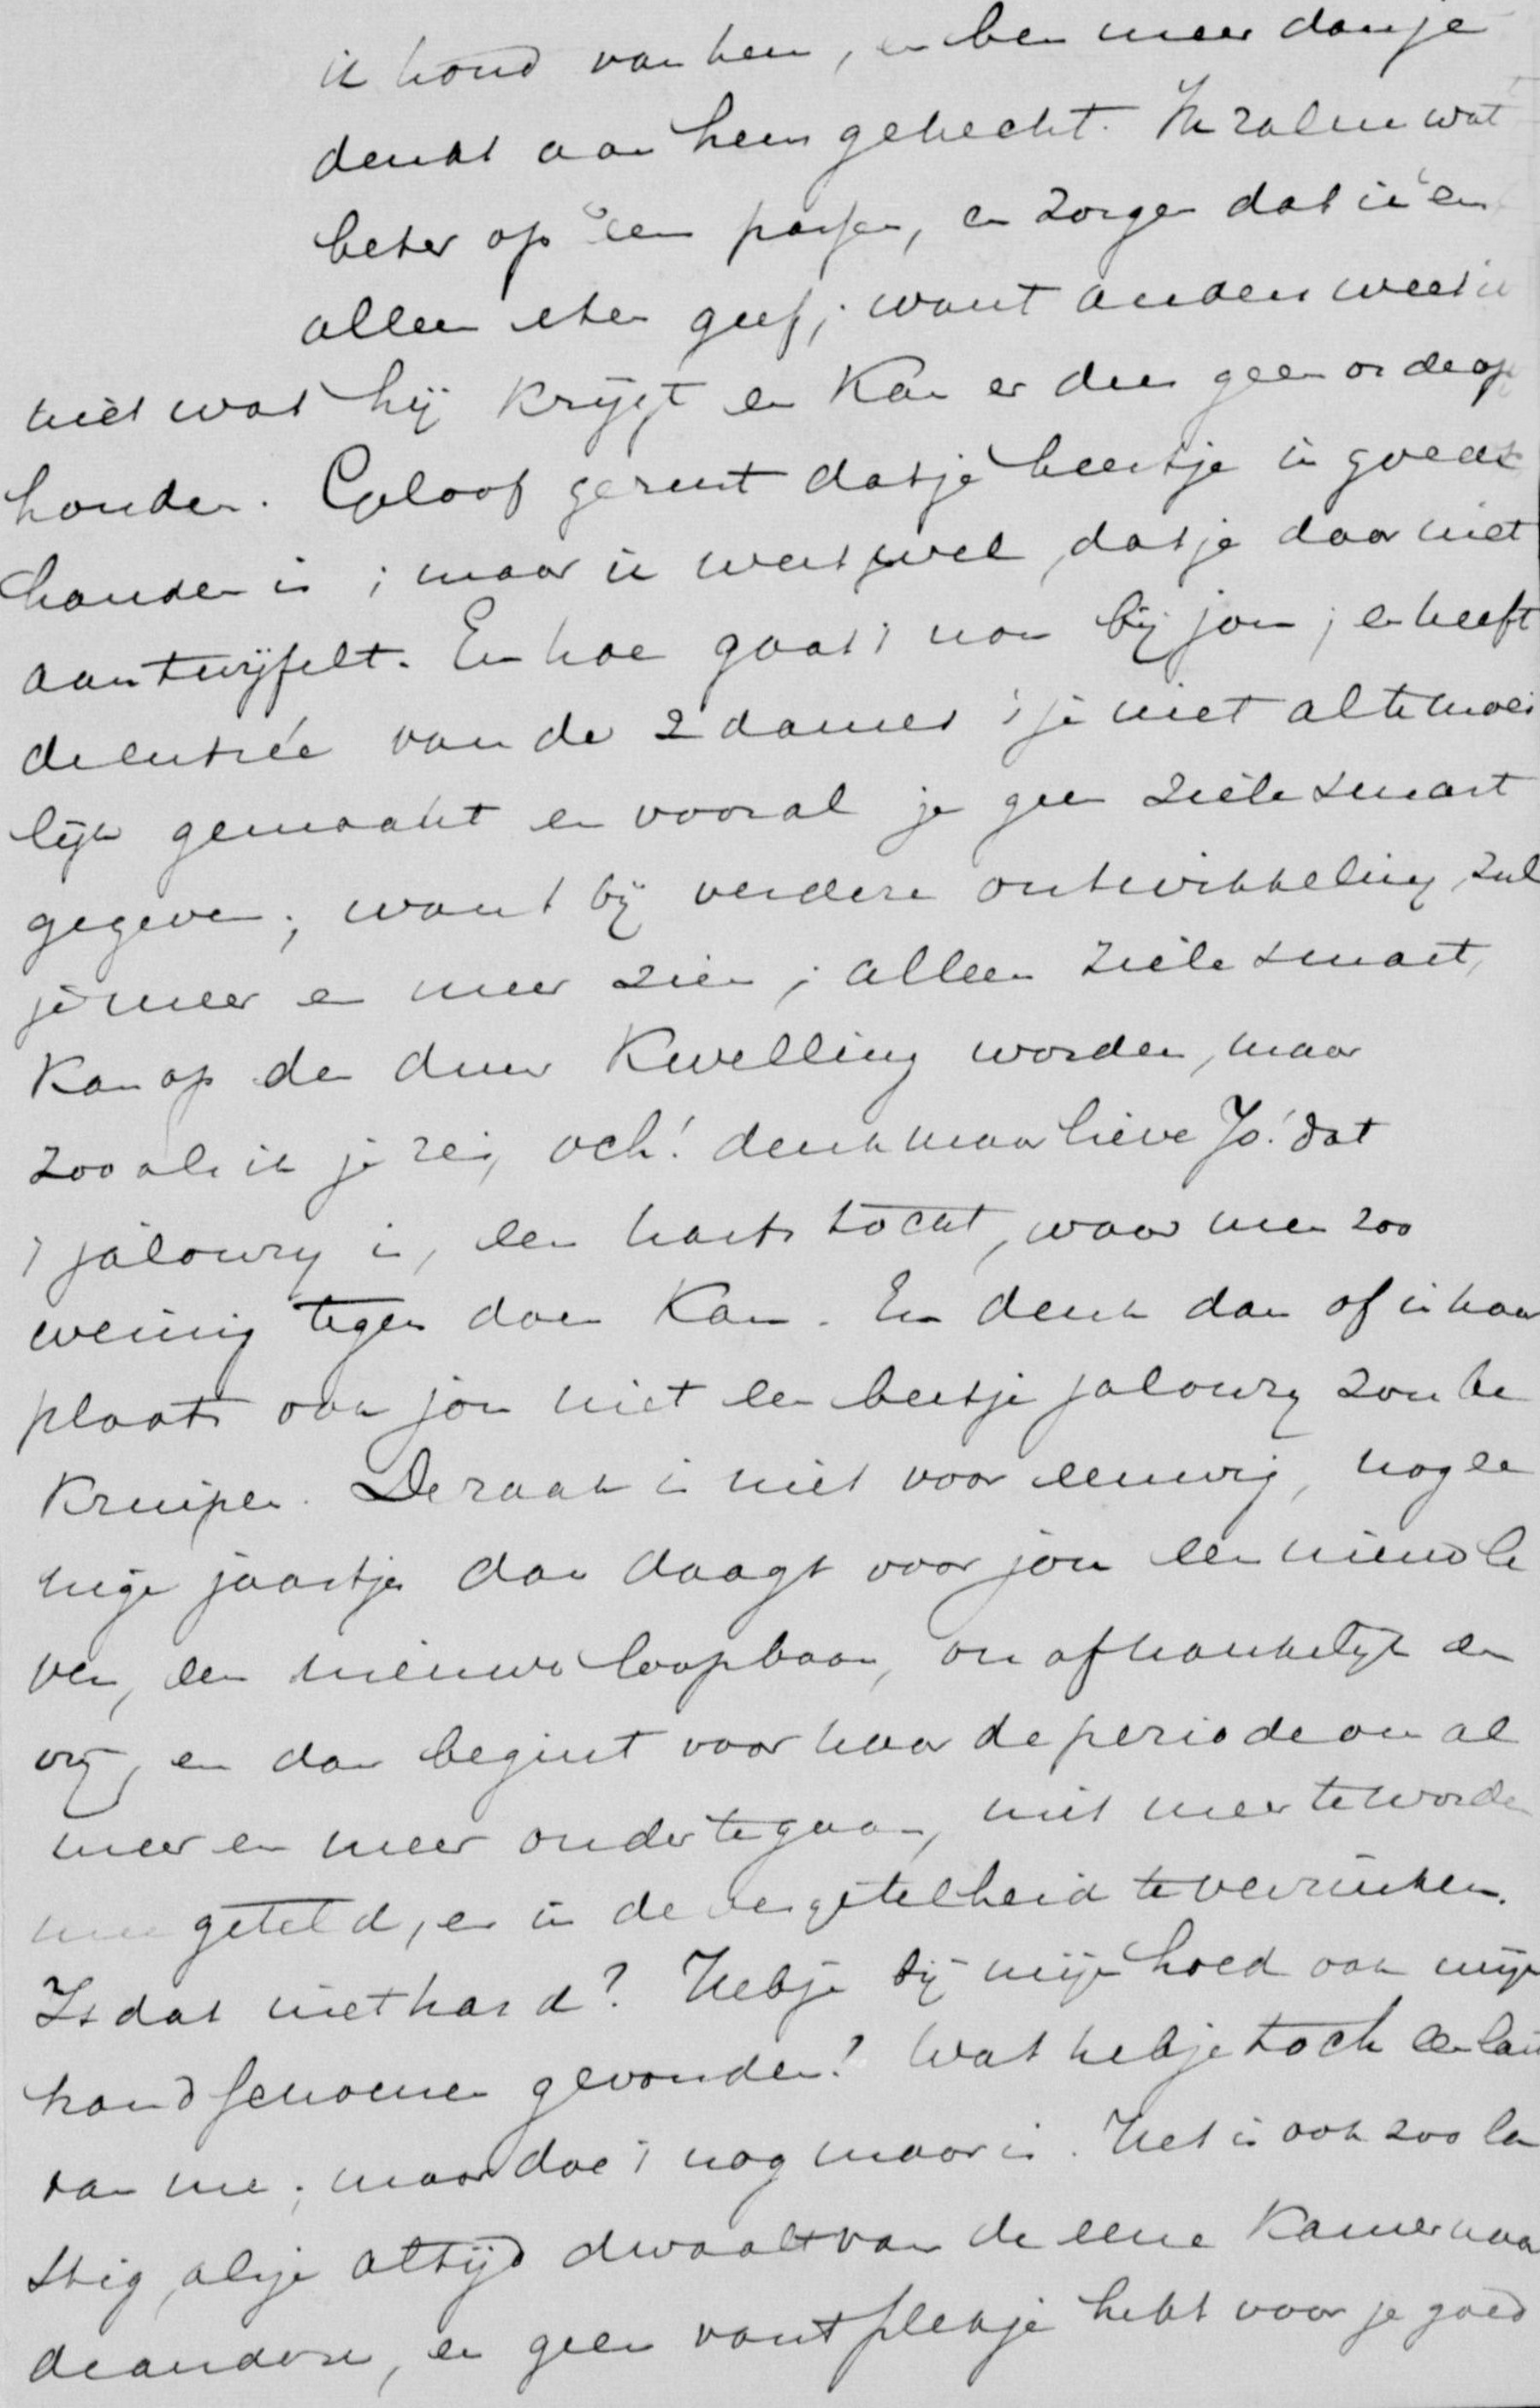 ik houd van hem, en ben meer dan je
denkt aan hem gehecht. Ik zal nu wat
beter op 'em passen, en zorgen dat ik 'em
alleen eten geef; want anders weet ik
niet wat hij krijgt en kan er dus geen orde op
houden. Geloof gerust dat je beestje in goede
handen is; maar ik weet wel, dat je daar niet
aan twijfelt. En hoe gaat 't nou bij jou; en heeft
de entrée van de 2 dames 't je niet al te moei
lijk gemaakt en vooral je geen zielesmart
gegeven; want bij verdere ontwikkeling, zul
je meer en meer zien; alleen zielesmart,
kan op den duur kwelling worden, maar
zooals ik je zei, och! denk maar lieve Jo! dat
't jalouzy is, een hartstocht, waar men zoo
weinig tegen doen kan. En denk dan of in haar
plaats ook jou niet een beetje jalouzy zou be
kruipen. De zaak is niet voor eeuwig, nog ee
nige jaartjes dan daagt voor jou een nieuw le
ven, een nieuwe loopbaan, onafhankelijk en
vrij, en dan begint voor haar de periode om al
meer en meer onder te gaan, niet meer te worden
mee geteld, en in de vergetelheid te verzinken.
Is dat niet hard? Heb je bij mijn hoed ook mijn
handschoenen gevonden? Wat heb je toch een last
van me; maar doe 't nog maar is. Het is ook zoo la
stig, als je altijd dwaalt van de eene kamer naar
de andere, en geen vast plekje hebt voor je goed